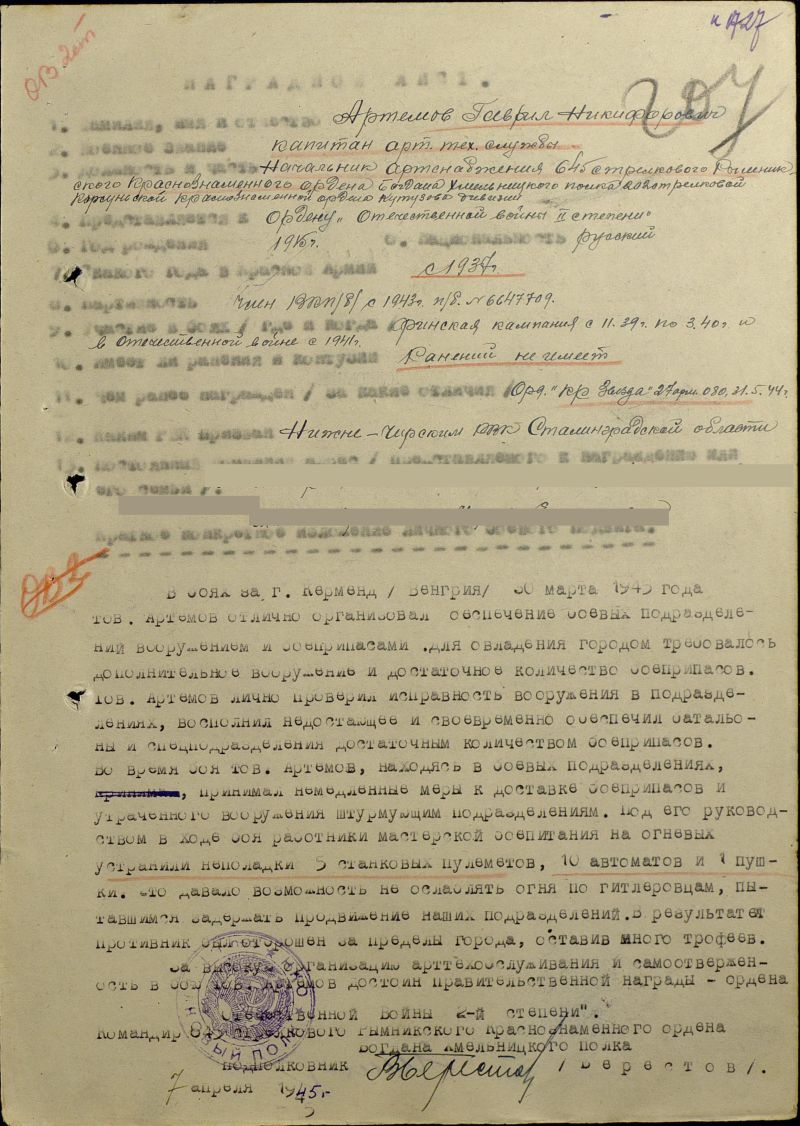 ОВ 2ст
НАГРАДНОЙ ЛИСТ.
207
1. Фамилия, имя и отчество Артемов Гаврил Никифорович
2. Военное звание капитан арт. тех. службы
3. Должность и часть Начальник артснабжения 645 стрелкового Рымник-
ского Краснознаменного ордена Богдана Хмельницкого полка 202 стрелковой
Корсунской Краснознаменной ордена Кутузова дивизии
4. Представляется к Ордену „Отечественной войны II степени"
5. Год рождения 1915г. 6. Национальность русский
7. С какого года в Красной Армии с 1937г.
8. Партийность Член ВКП/б/ с 1943г. п/б. №6647709.
9. Участие в боях / где и когда / Финская кампания с 11.39г. по 3.40г. и
в Отечественной войне с 1941г.
10. Имеет ли ранения и контузии Ранений не имеет
11. Чем ранее награжден / за какие отличия / Орд. "Кр Звезда" 27 арм. 080, 31.5.44г.
12. Каким РВК призван Нижне-Чирским РВК Сталинградской области
13. Постоянный домашний адрес / представляемого к награждению или
его семьи /.
Краткое конкретное изложение личного боевого подвига.
ОВ2
В боях за г. Керменд / Венгрия/ 30 марта 1945 года
тов. Артемов отлично организовал обеспечение боевых подразделе-
ний вооружением и боеприпасами .Для овладения городом требовалось
дополнительное вооружение и достаточное количество боеприпасов.
Тов. Артемов лично проверил исправность вооружения в подразде-
лениях, восполнил недостающее и своевременно обеспечил баталье-
ны и спецподразделения достаточным количеством боеприпасов.
Во время боя тов. Артемов, находясь в боевых подразделениях,
, принимал немедленные меры к доставке боеприпасов и
утраченного вооружения штурмующим подразделениям. Под его руковод-
ством в ходе боя работники мастерской боепитания на огневых
устранили неполадки 5 станковых пулеметов, 10 автоматов и 1 пуш-
ки. Это давало возможность не ослаблять огня по гитлеровцам, пы-
тавшимся задержать продвижение наших подразделений.В результате
противник был отброшен за пределы города, оставив много трофеев.
За высокую организацию арттехобслуживания и самоотвержен-
ость в бою тов. Артемов достоин правительственной награды - ордена
"Отечественной Войны 2-й степени".
Командир 645 стрелкового Рымникского Краснознаменного ордена
Богдана Хмельницкого полка
подполковник / Берестов /.
7 апреля 1945г.